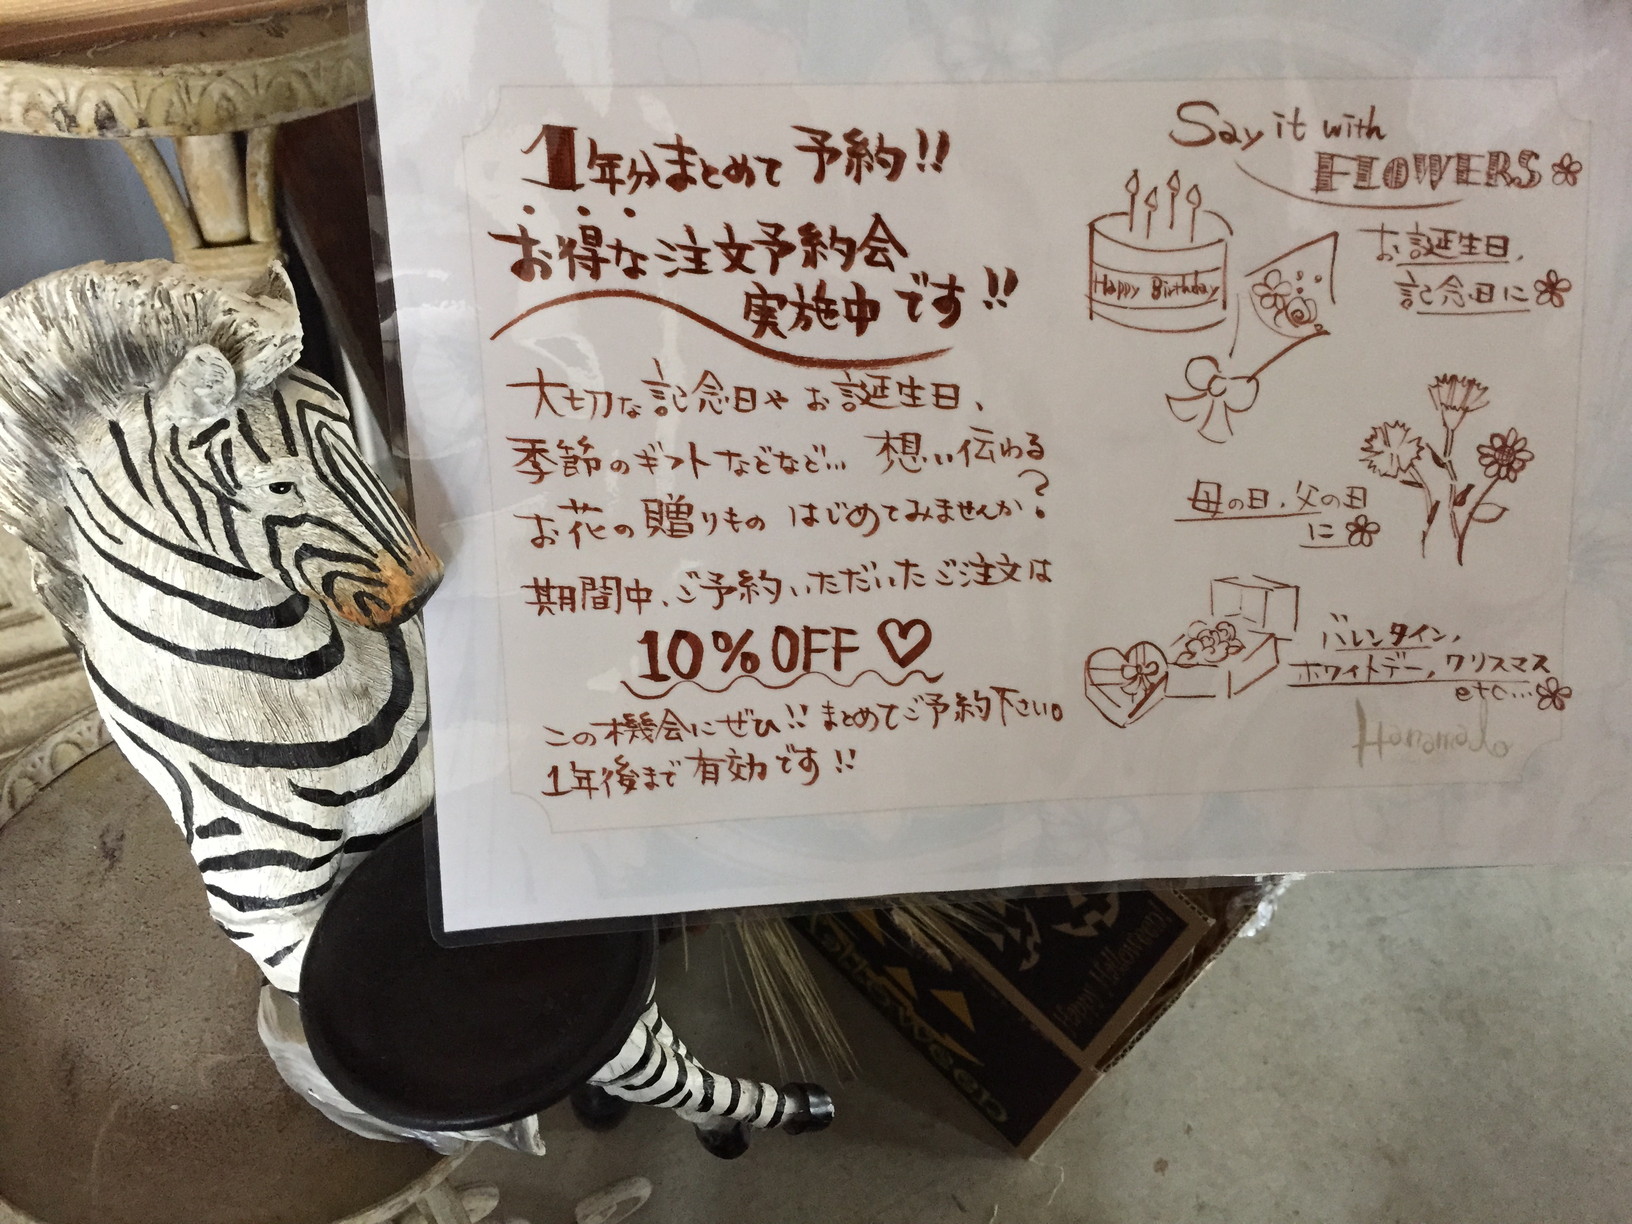 1年分まとめて予約!!
お得な注文予約会
実施中です!!
大切な記念日やお誕生日、
季節のギフトなどなど… 想い伝わる
お花の贈りもの はじめてみませんか?
期間中、ご予約いただいたご注文は
10%OFF♡
この機会にぜひ!! まとめてご予約下さい。
1年後まで有効です!!
Say it with
FLOWERS
Happy Birthday
お誕生日、
記念日に
母の日、父の日
に
バレンタイン、
ホワイトデー、クリスマス
etc...
Hanamado
Happy Halloween